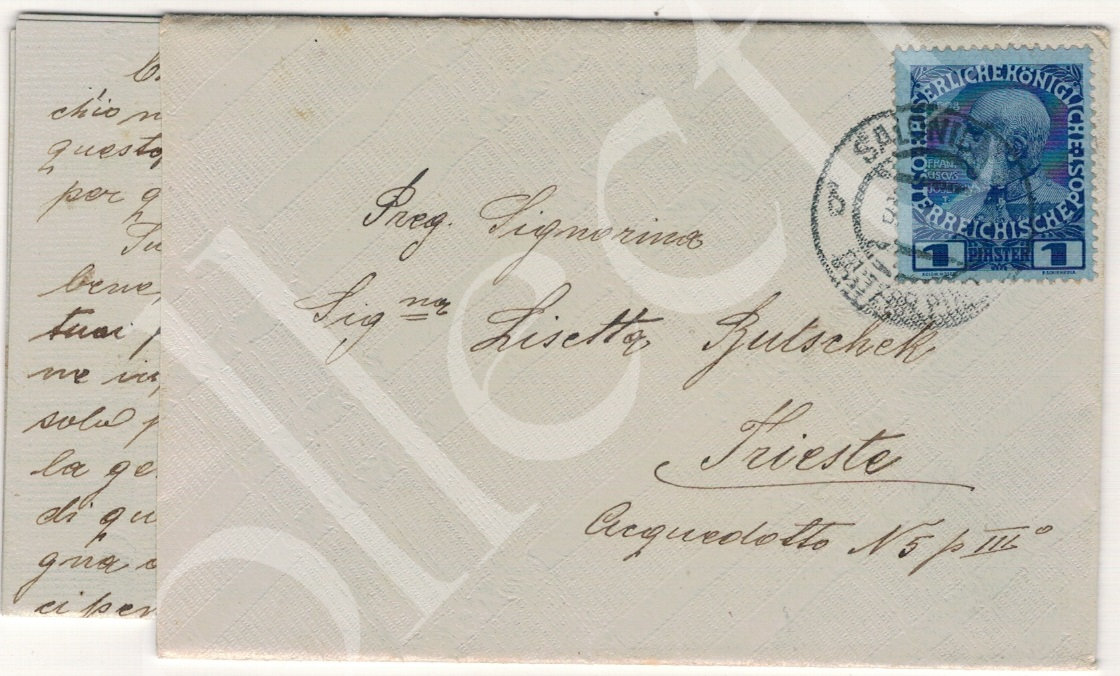 chio n
questo
per q
Tu
bene,
tuoi p
ne
solo p
la ge
di qu
gna
ci per
Preg. Signorina
Sig na
Lisetta Butschek
Trieste
Acquedotto N 5 p III°
KAISERLICHE KÖNIGLICHE
ÖSTERREICHISCHE POST
FRAN
CISCVS
IOSEPHVS
1 PIASTER 1
SALONICH